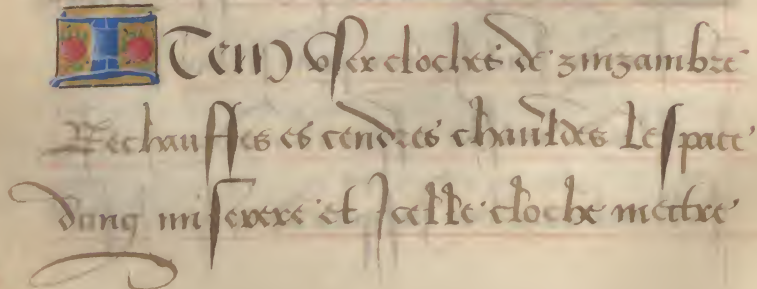 Item user cloches de zinzambre
Rechauffes es cendres chauldes Lespace
dung miserere et Icelle cloche mettre